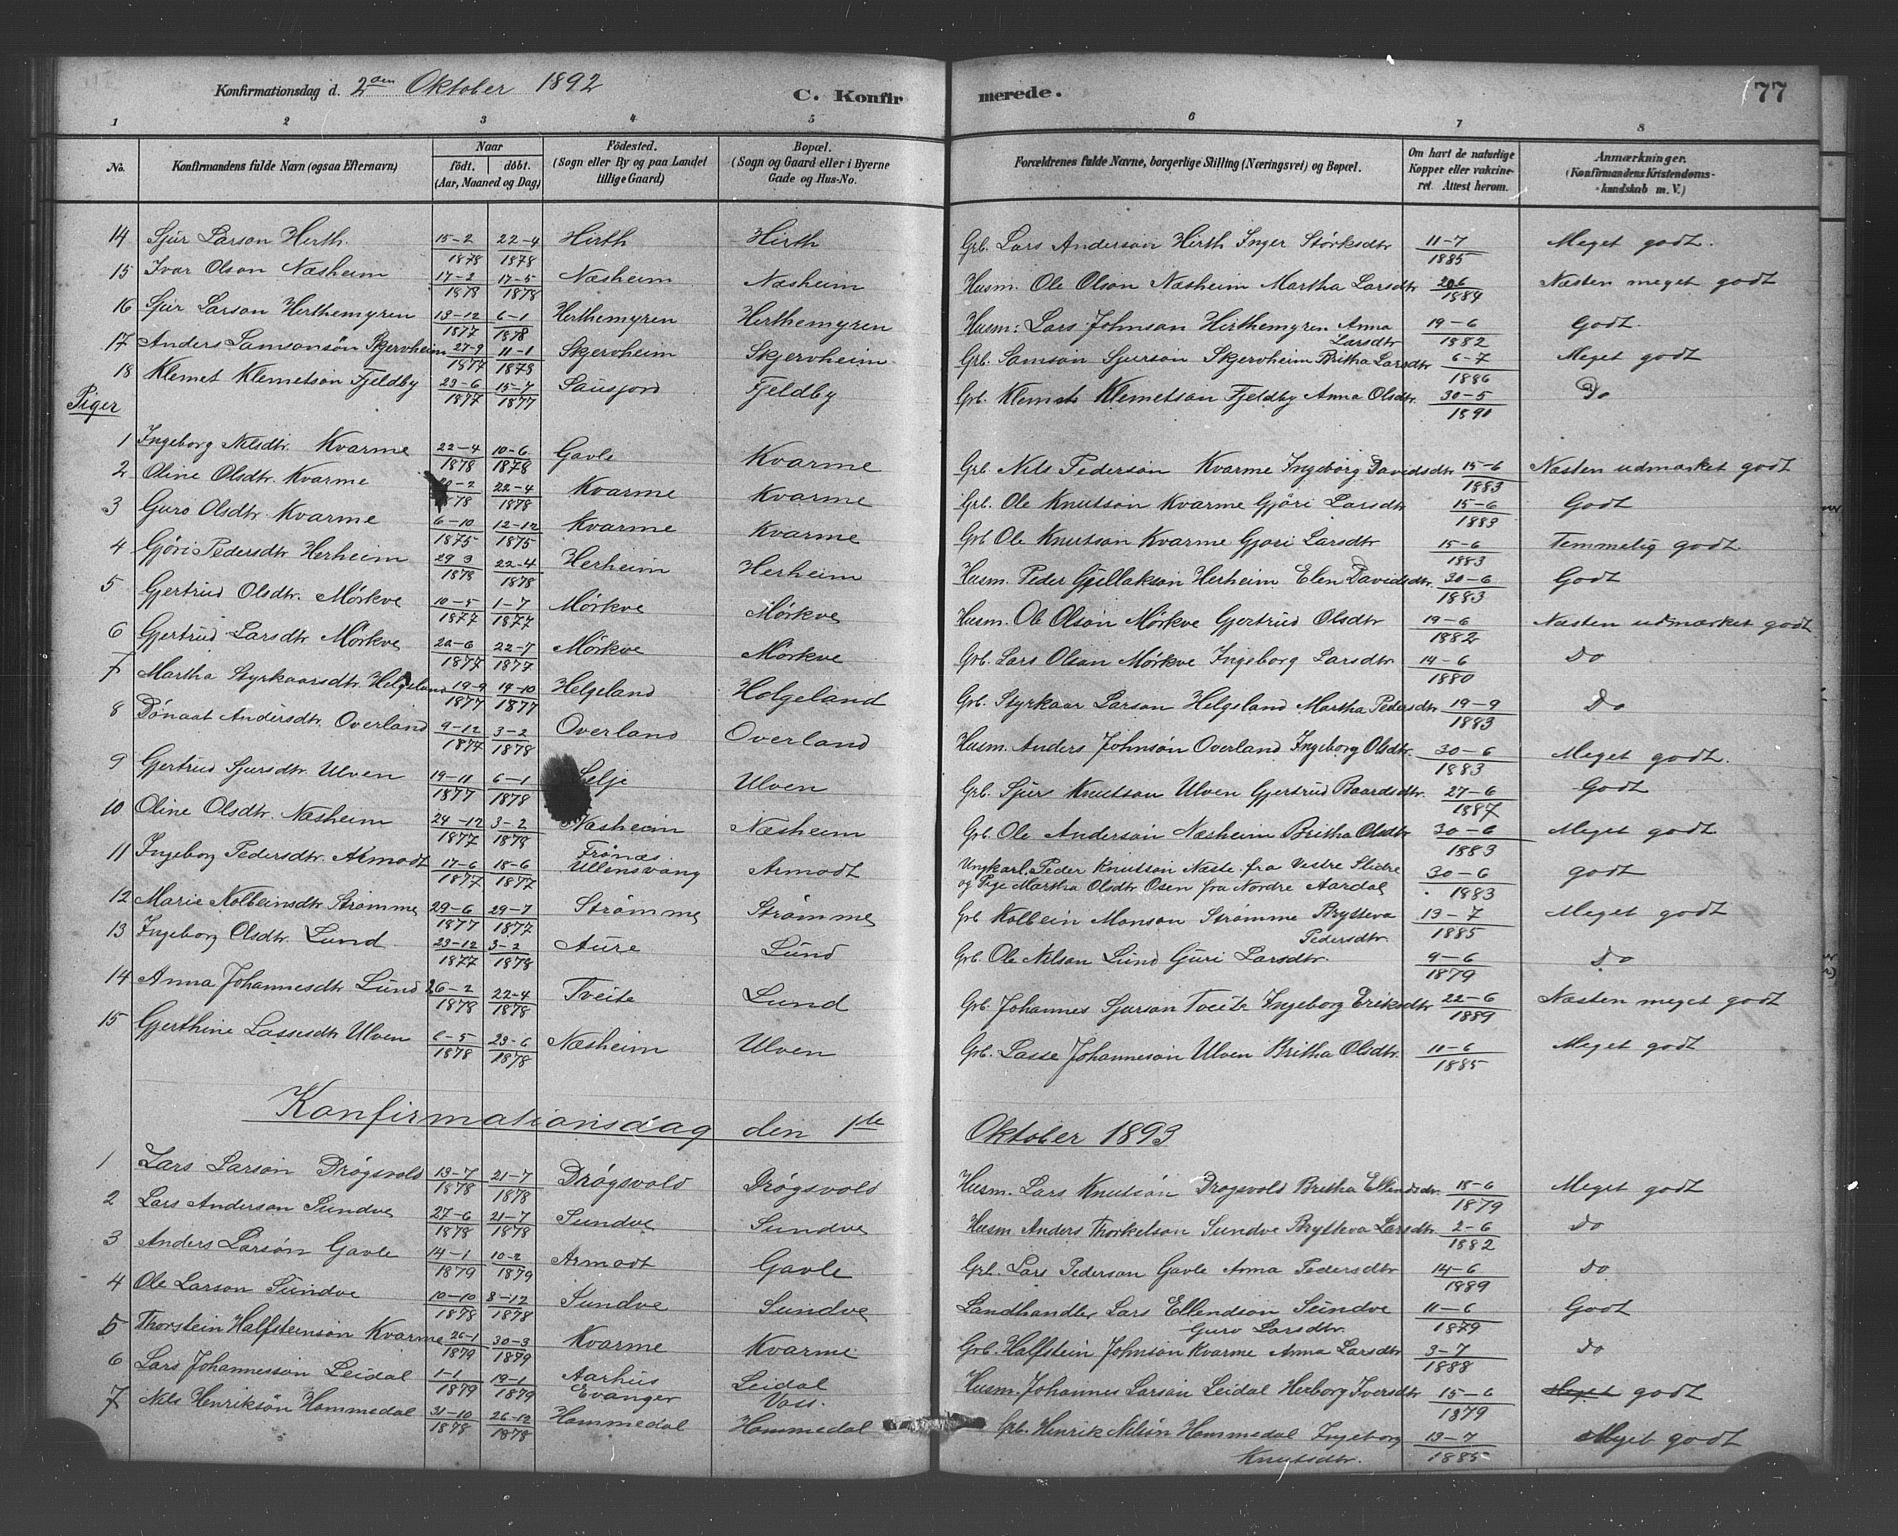 Konfirmationsdag d. 2den Oktober 1892 C. Konfirmerede. 77
1 2 3 4 5 6 7 8
No. Konfirmandens fulde Navn (ogsaa Efternavn) Naar født. døbt. (Aar, Maaned og Dag) Fødested. (Sogn eller By og paa Landet tillige Gaard) Bopæl. (Sogn og Gaard eller i Byerne Gade og Hus-No. Forældrenes fulde Navne, borgerlige Stilling (Næringsvei) og Bopæl. Om havt de naturlige Kopper eller vakcineret. Attest herom. Anmærkninger. (Konfirmandens Kristendomskundskab m. V.)
14 Sjur Larson Herth. 15-2 1878 22-4 1878 Hirth Hirth Grb. Lars Anderson Hirth Inger Størksdtr 11-7 1885 Meget godt.
15 Ivar Olson Næsheim 17-2 1878 17-5 1878 Næsheim Næsheim Husm. Ole Olson Næsheim Martha Larsdtr 1884 Næsten meget godt
16 Sjur Larson Herthemyren 13-12 1877 6-1 1878 Herthemyren Herthemyren Husm: Lars Johnson Hirthemyren Anna Larsdtr 19-6 1882 Godt.
17 Anders Samsonsøn Skjervheim 27-9 1877 11-1 1878 Skjervheim Skjervheim Grb. Samson Sjurson Skjervheim Britha Larsdtr 6-7 1886 Meget godt
18 Klemet Klemetson Fjeldby 23-6 1877 15-7 1877 Sausjord Fjeldby Grb. Klemet Klemetson Fjeldby Anna Olsdtr. 30-5 1890 Do
Piger
1 Ingeborg Nilsdtr. Kvarme 22-4 1878 10-6 1878 Gavle Kvarme Grb. Nils Pederson Kvarme Ingeborg Davidsdtr 15-6 1883 Næsten udmærket godt
2 Oline Olsdtr. Kvarme 22-4 1878 Kvarme Kvarme Grb. Ole Knutson Kvarme Gjöri Larsdtr 15-6 1883 Godt
3 Guro Olsdtr. Kvarme 6-10 1875 12-12 1875 Kvarme Kvarme Grb Ole Knutson Kvarme Gjori Larsdtr 15-6 1883 Temmelig godt
4 Gjöri Pedersdtr Herheim 29 3 1878 22-4 1878 Herheim Herheim Husm. Peder Gullakson Herheim Elen Davidsdtr. 30-6 1883 Godt
5 Gjertrud Olsdtr. Mørkve 10-5 1877 1-7 1877 Mørkve Mørkve Husm. Ole Olson Mørkve Gjertrud Olsdtr 19-6 1882 Næsten udmærket godt
6 Gjertrud Larsdtr Mørkve 20-6 1877 22-7 1877 Mørkve Mørkve Grb. Lars Olson Mørkve Ingeborg Larsdtr. 14-6 1880 Do
7 Martha Styrkaarsdtr Helgeland 19-9 1877 19-10 1877 Helgeland Holgeland Grb. Styrkaar Larson Helgeland Martha Pedersdtr 19-9 1883 Do
8 Dønaat Andersdtr. Overland 9-12 1877 3-2 1878 Overland Overland Husm. Anders Johnson Overland Ingeborg Olsdtr. 30-6 1883 Meget godt.
9 Gjertrud Sjursdtr Ulven 19-11 1877 6-1 1878 Selje Ulven Grb. Sjur Knutson Ulven Gjertrud Baardsdtr. 27-6 1887 Godt
10 Oline Olsdtr. Næsheim 24-12 1877 3-2 1878 Næsheim Næsheim Grb. Ole Anderson Næsheim Britha Olsdtr. 30-6 1883 Meget godt
11 Ingeborg Pedersdtr. Armodt 17-6 1877 18-6 1877 Frønæs Ullensvang Armodt Ungkarl. Peder Knutson Naste fra Vestre Slidre og Pige Martha Olsdtr. Osen fra Nordre Aardal 30-6 1883 godt
12 Marie Kolbeinsdtr Strømme 29-6 1877 29-7 1877 Strømme Strømme Grb Kolbein Monson Strømme Brytteva Pedersdtr. 13-7 1885 Meget godt
13 Ingeborg Olsdtr. Lund 23-12 1877 3-2 1878 Aure Lund Grb. Ole Nilson Lund Guri Larsdtr. 9-6 1879 Do
14 Anna Johannesdtr Lund 26-2 1878 22-4 1878 Tveite Lund Grb. Johannes Sjurson Tveite Ingeborg Eriksdtr 22-6 1889 Næsten meget godt
15 Gjerthine Lassesdtr Ulven 6-5 1878 23-6 1878 Næsheim Ulven Grb. Lasse Johanneson Ulven Britha Olsdtr. 10-6 1885 Meget godt
Konfirmationsdag den 1ste Oktober 1893
1 Lars Larson Drøgsvold 13-7 1878 21-7 1878 Drøgsvold Drøgsvold Husm. Lars Knutson Drogsvold Britha Ellendsdr. 18-6 1879 Meget godt
2 Lars Anderson Sundve 27-6 1878 21-7 1878 Sundve Sundve Husm Anders Thorkelson Sundve Brytteva Larsdtr. 2-6 1882 Do
3 Anders Larson Gavle 14-1 1879 10-2 1879 Armodt Gavle Grb. Lars Pederson Gavle Anna Pedersdtr 14-6 1889 Do
4 Ole Larson Sundve 10-10 1878 8-12 1878 Sundve Sundve Landhandler Lars Ellendson Sundve Guro Larsdtr. 11-6 1879 Godt
5 Thorstein Halfsteinson Kvarme 26-1 1879 30-3 1879 Kvarme Kvarme Grb. Halfstein Johnson Kvarme Anna Larsdtr 3-7 1888 Do
6 Lars Johannesson Leidal 1-1 1879 19-1 1879 Aarhus Evanger Leidal Voss. Husm. Johannes Larson Leidal Herborg Iversdtr 15-6 1879 Meget godt
7 Nils Henrikson Hommedal 31-10 1878 26-12 1878 Hommedal Hommedal Grb. Henrik Nilson Hommedal Ingeborg Knutsdtr. 13-7 1885 Meget godt